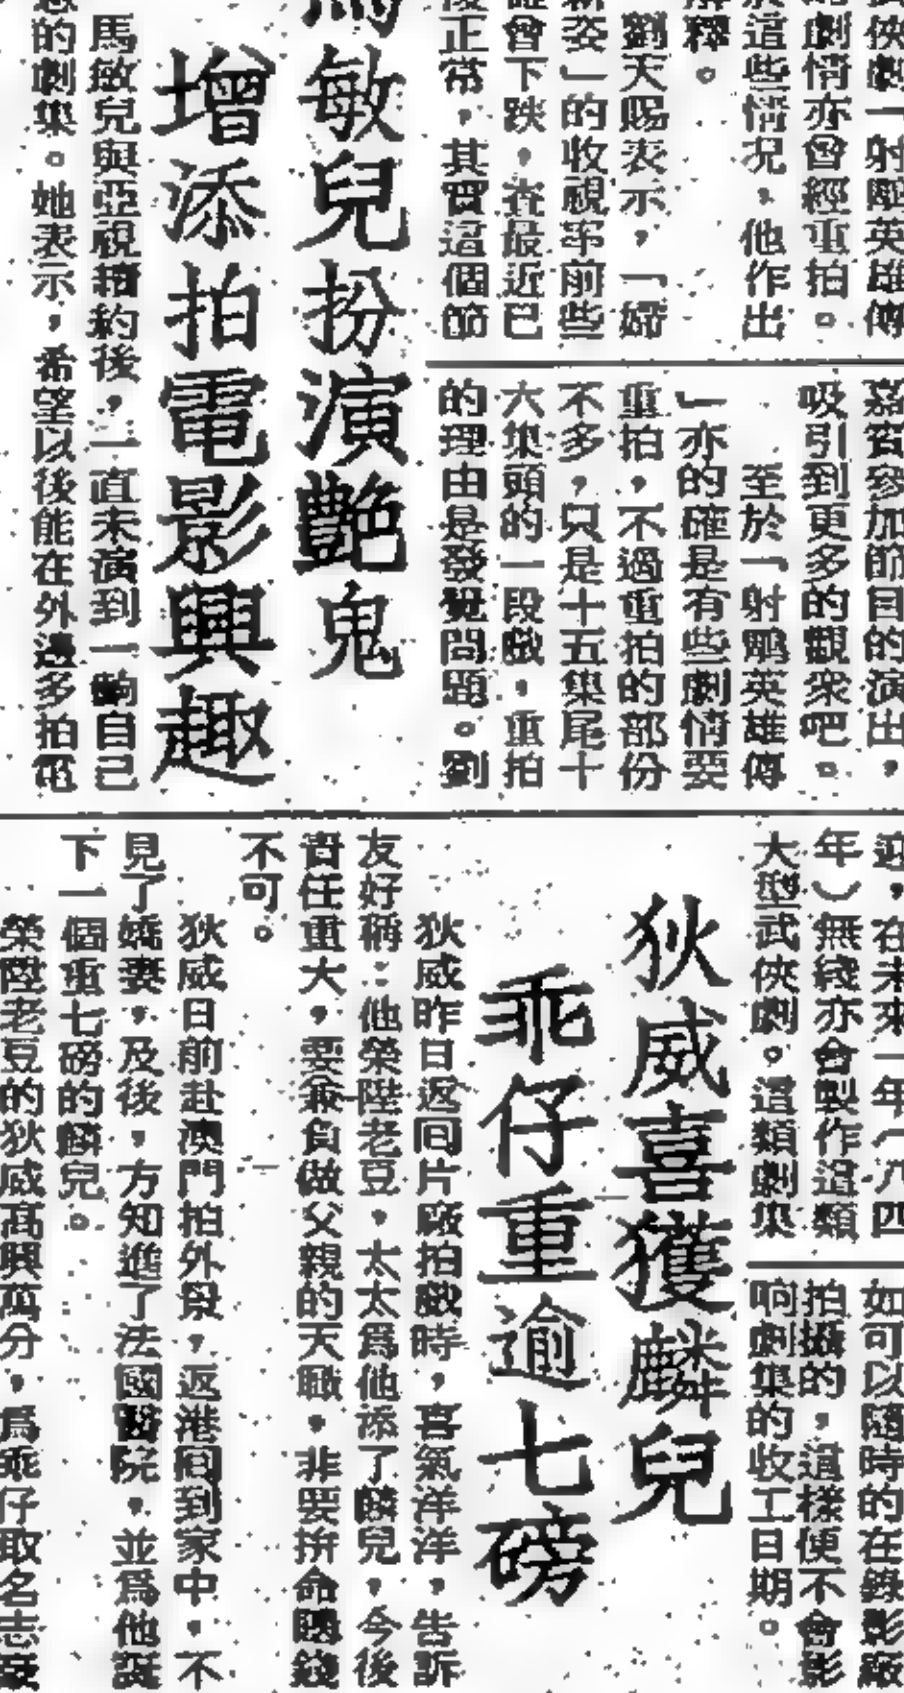 俠劇「射鵰英雄傳
的劇情亦曾經重拍。
於這些情况，他作出
解釋。
劉天賜表示，「婦
新姿」的收視率前些
確曾下跌，查最近已
復正常，其實這個節
嘉賓參加節目的演出，
吸引到更多的觀衆吧。
至於「射鵰英雄傳
」亦的確是有些劇情要
重拍，不過重拍的部份
不多，只是十五集尾十
六集頭的一段戲，重拍
的理由是發覺問題。劉
馬敏兒扮演艷鬼
增添拍電影興趣
馬敏兒與亞視簽約後，一直未演到一齣自己
的劇集。她表示，希望以後能在外邊多拍電
迎，在未來一年（八四
年）無綫亦會製作這類
大型武俠劇。這類劇集
如可以隨時的在錄影廠
拍攝的，這樣便不會影
响劇集的收工日期。
狄威喜獲麟兒
乖仔重逾七磅
狄威昨日返回片廠拍戲時，喜氣洋洋，告訴
友好稱：他榮陞老豆，太太爲他添了麟兒，今後
責任重大，要兼負做父親的天職，非要拚命賺錢
不可。
狄威日前赴澳門拍外景，返港回到家中，不
見了嬌妻，及後，方知進了法國醫院，並爲他誕
下一個重七磅的麟兒。
榮陞老豆的狄威高興萬分，爲乖仔取名志